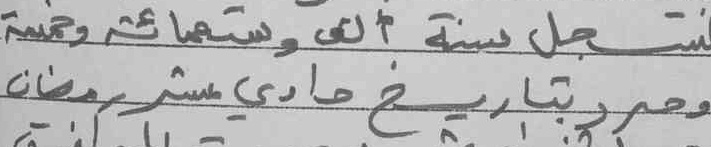 لتسجل سنة الف وستمائة وخمسة
وحرر بتاريخ حادي عشر رمضان